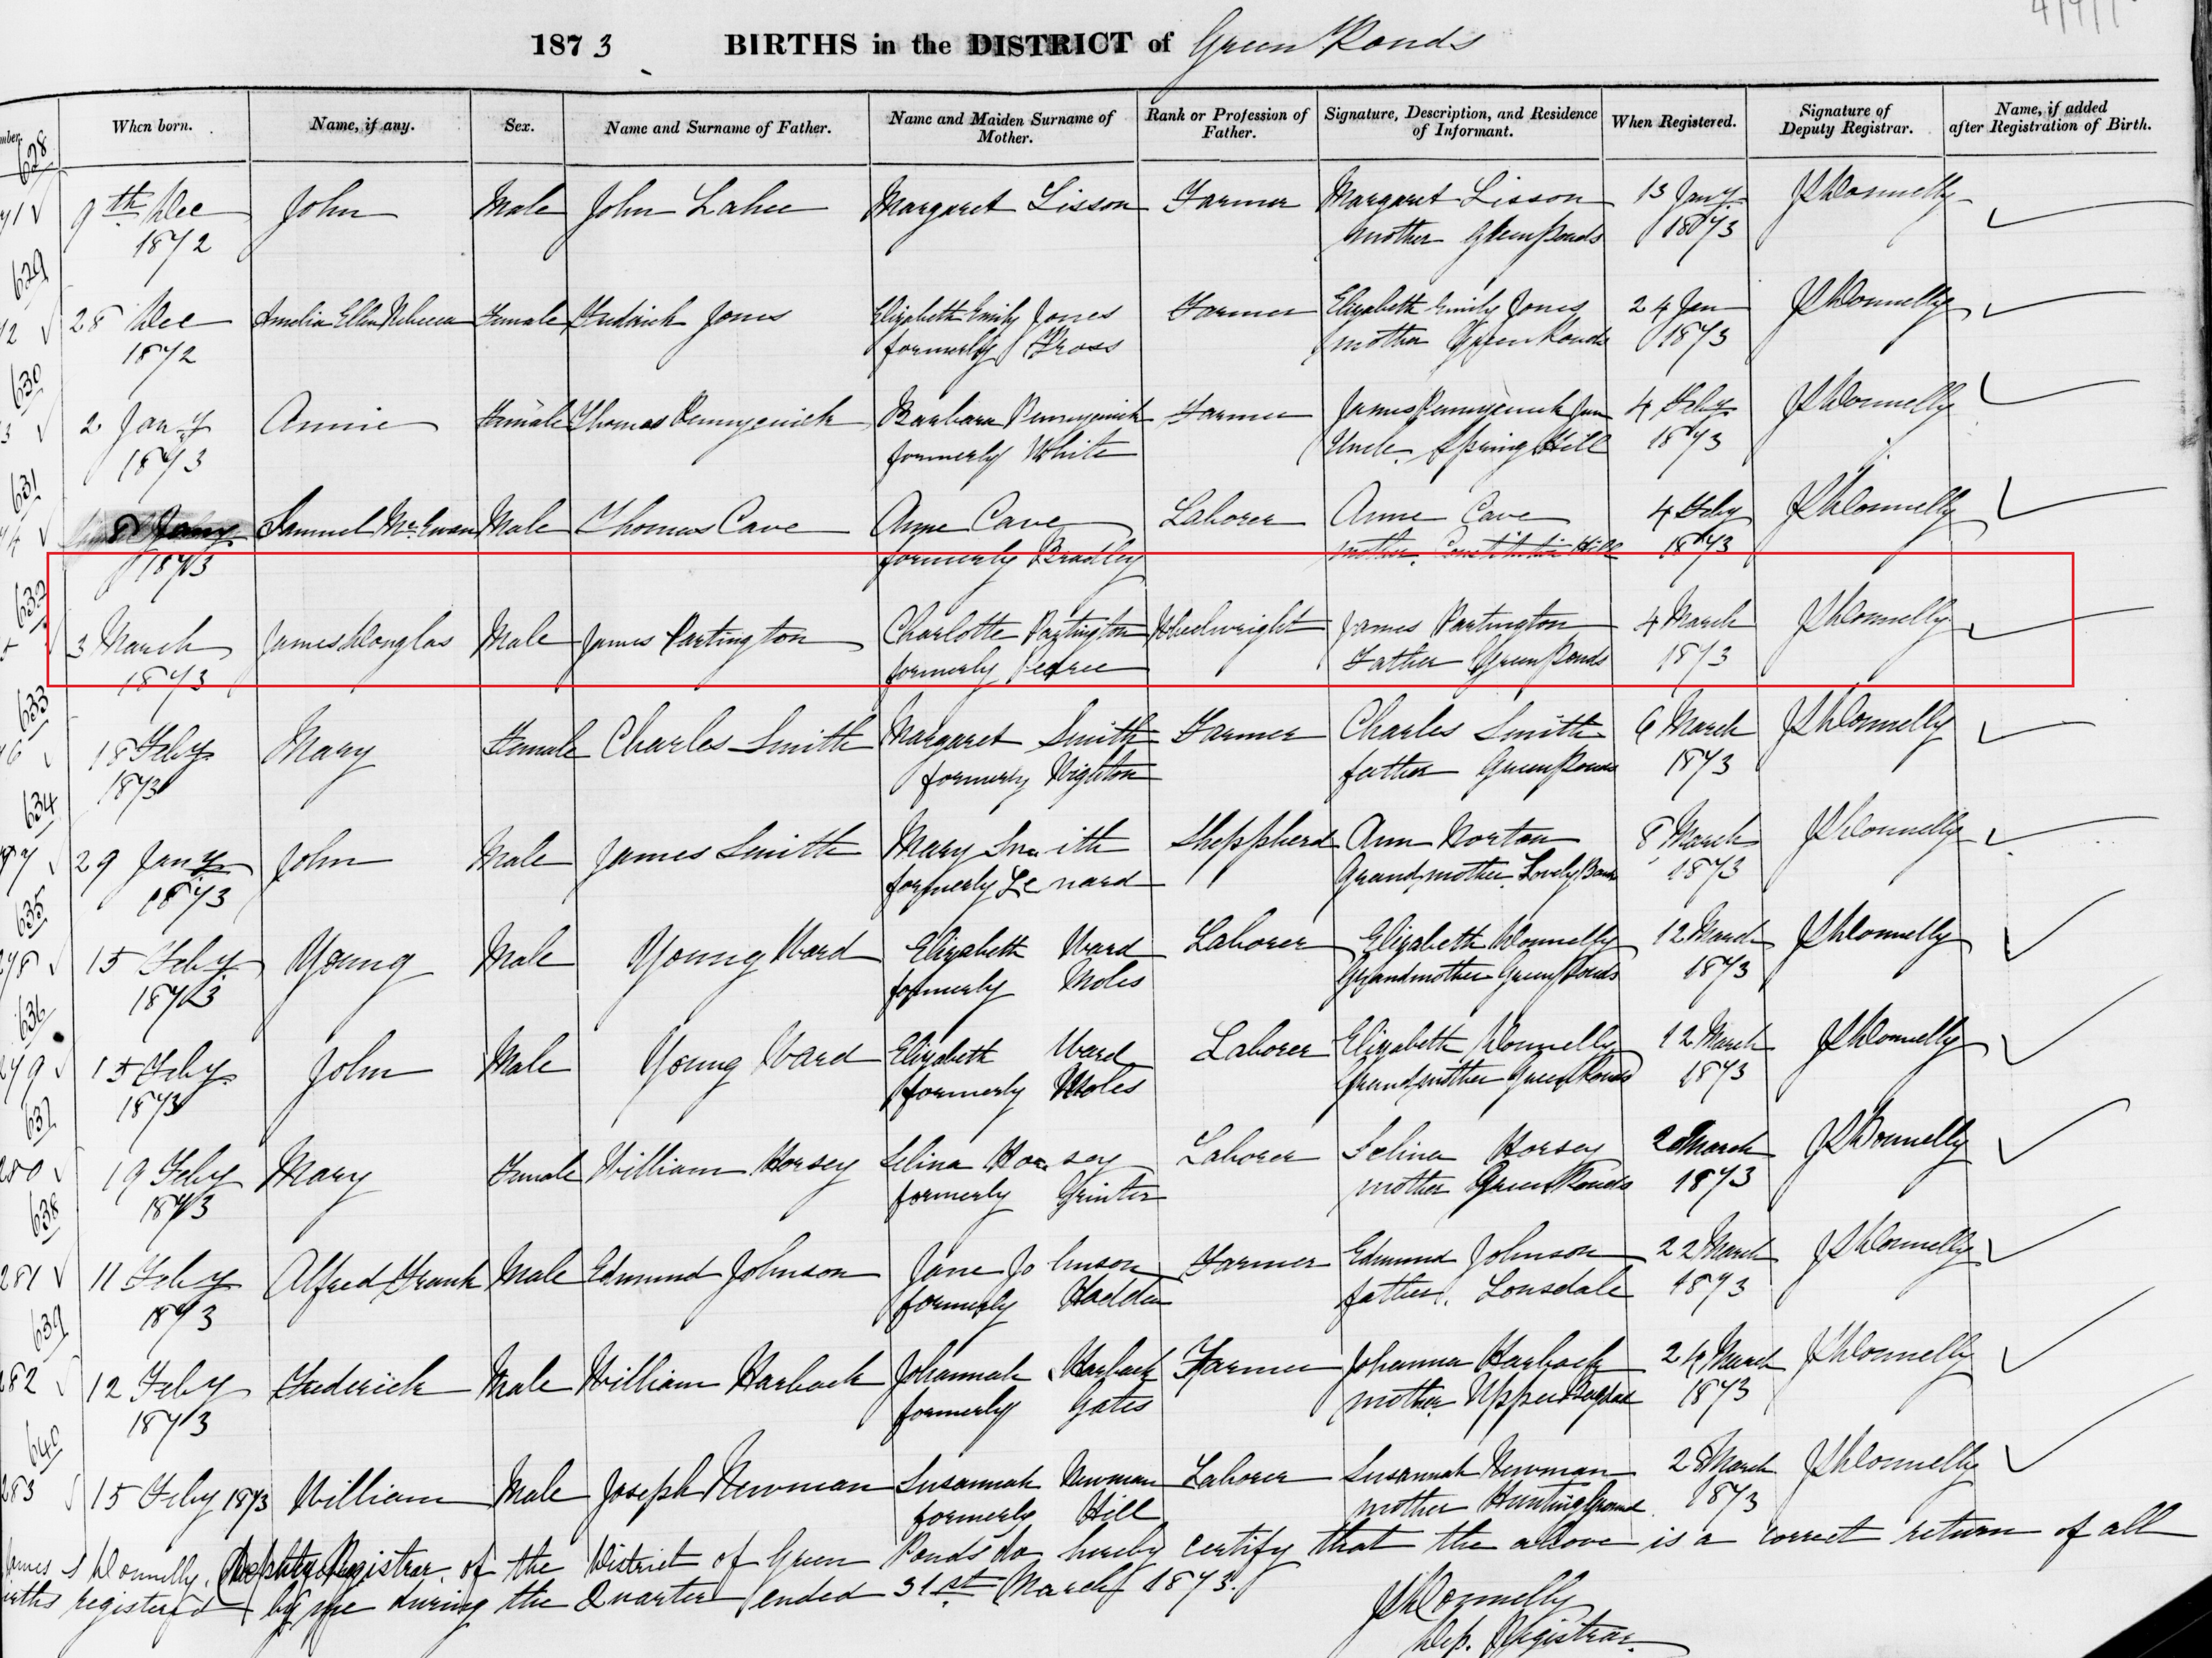 1873 BIRTHS in the DISTRICT of Green Ponds
When born. Name, if any. Sex. Name and Surname of Father. Name and Maiden Surname of Mother. Rank or Profession of Father. Signature, Description, and Residence of Informant. When Registered. Signature of Deputy Registrar. Name, if added after Registration of Birth.
628
9th Dec John Male John Lahee Margaret Lisson Farmer Margaret Lisson 13 Jany JS Donnelly
1872 mother Green Ponds 1873
629
28 Dec Amelia Ellen Rebecca Female Fredrick Jones Elizabeth Emily Jones Farmer Elizabeth Emily Jones 24 Jan JS Donnelly
1872 formerly mother Green Ponds 1873
630
2 Jany Annie Female Thomas Pennycuick Barbara Pennycuick Farmer James Pennycuick Jun 4 Feby JS Donnelly
1873 formerly White Uncle Spring Hill 1873
631
8 Jany Samuel McEwan Male Thomas Cave Anne Cave Laborer Anne Cave 4 Feby JS Donnelly
1873 formerly Bradley mother. Constitution Hill 1873
632
3 March James Douglas Male James Partington Charlotte Partington Wheelwright James Partington 4 March JS Donnelly
1873 formerly Father Green Ponds 1873
633
18 Feby Mary Female Charles Smith Margaret Smith Farmer Charles Smith 6 March JS Donnelly
1873 formerly Wighton father Green Ponds 1873
634
29 Jany John Male James Smith Mary Smith Sheppherd Ann Norton 8 March JS Donnelly
1873 formerly Lenard Grandmother. Lovely Banks 1873
635
15 Feby Young Male Young Ward Elizabeth Ward Laborer Elizabeth Donnelly 12 March JS Donnelly
1873 formerly Moles Grandmother Green Ponds 1873
636
15 Feby John Male Young Ward Elizabeth Ward Laborer Elizabeth Donnelly 12 March JS Donnelly
1873 formerly Moles Grandmother Green Ponds 1873
637
19 Feby Mary Female William Horsey Selina Horsey Laborer Selina Horsey 20 March JS Donnelly
1873 formerly Grinter mother Green Ponds 1873
638
281 11 Feby Alfred Frank Male Edmund Johnson Jane Johnson Farmer Edmund Johnson 22 March JS Donnelly
1873 formerly Hadden father. Lonsdale 1873
639
282 12 Feby Frederick Male William Harback Johannah Harback Farmer Johanna Harback 24 March JS Donnelly
1873 formerly Gates mother Upper Bagdad 1873
640
283 15 Feby 1873 William Male Joseph Newman Susannah Newman Laborer Susannah Newman 28 March JS Donnelly
formerly Hill mother Hunting Ground 1873
James S Donnelly, Deputy Registrar of the District of Green Ponds do hereby certify that the above is a correct return of all
births registered by me during the Quarter ended 31st March 1873.
JS Donnelly
Dep. Registrar.